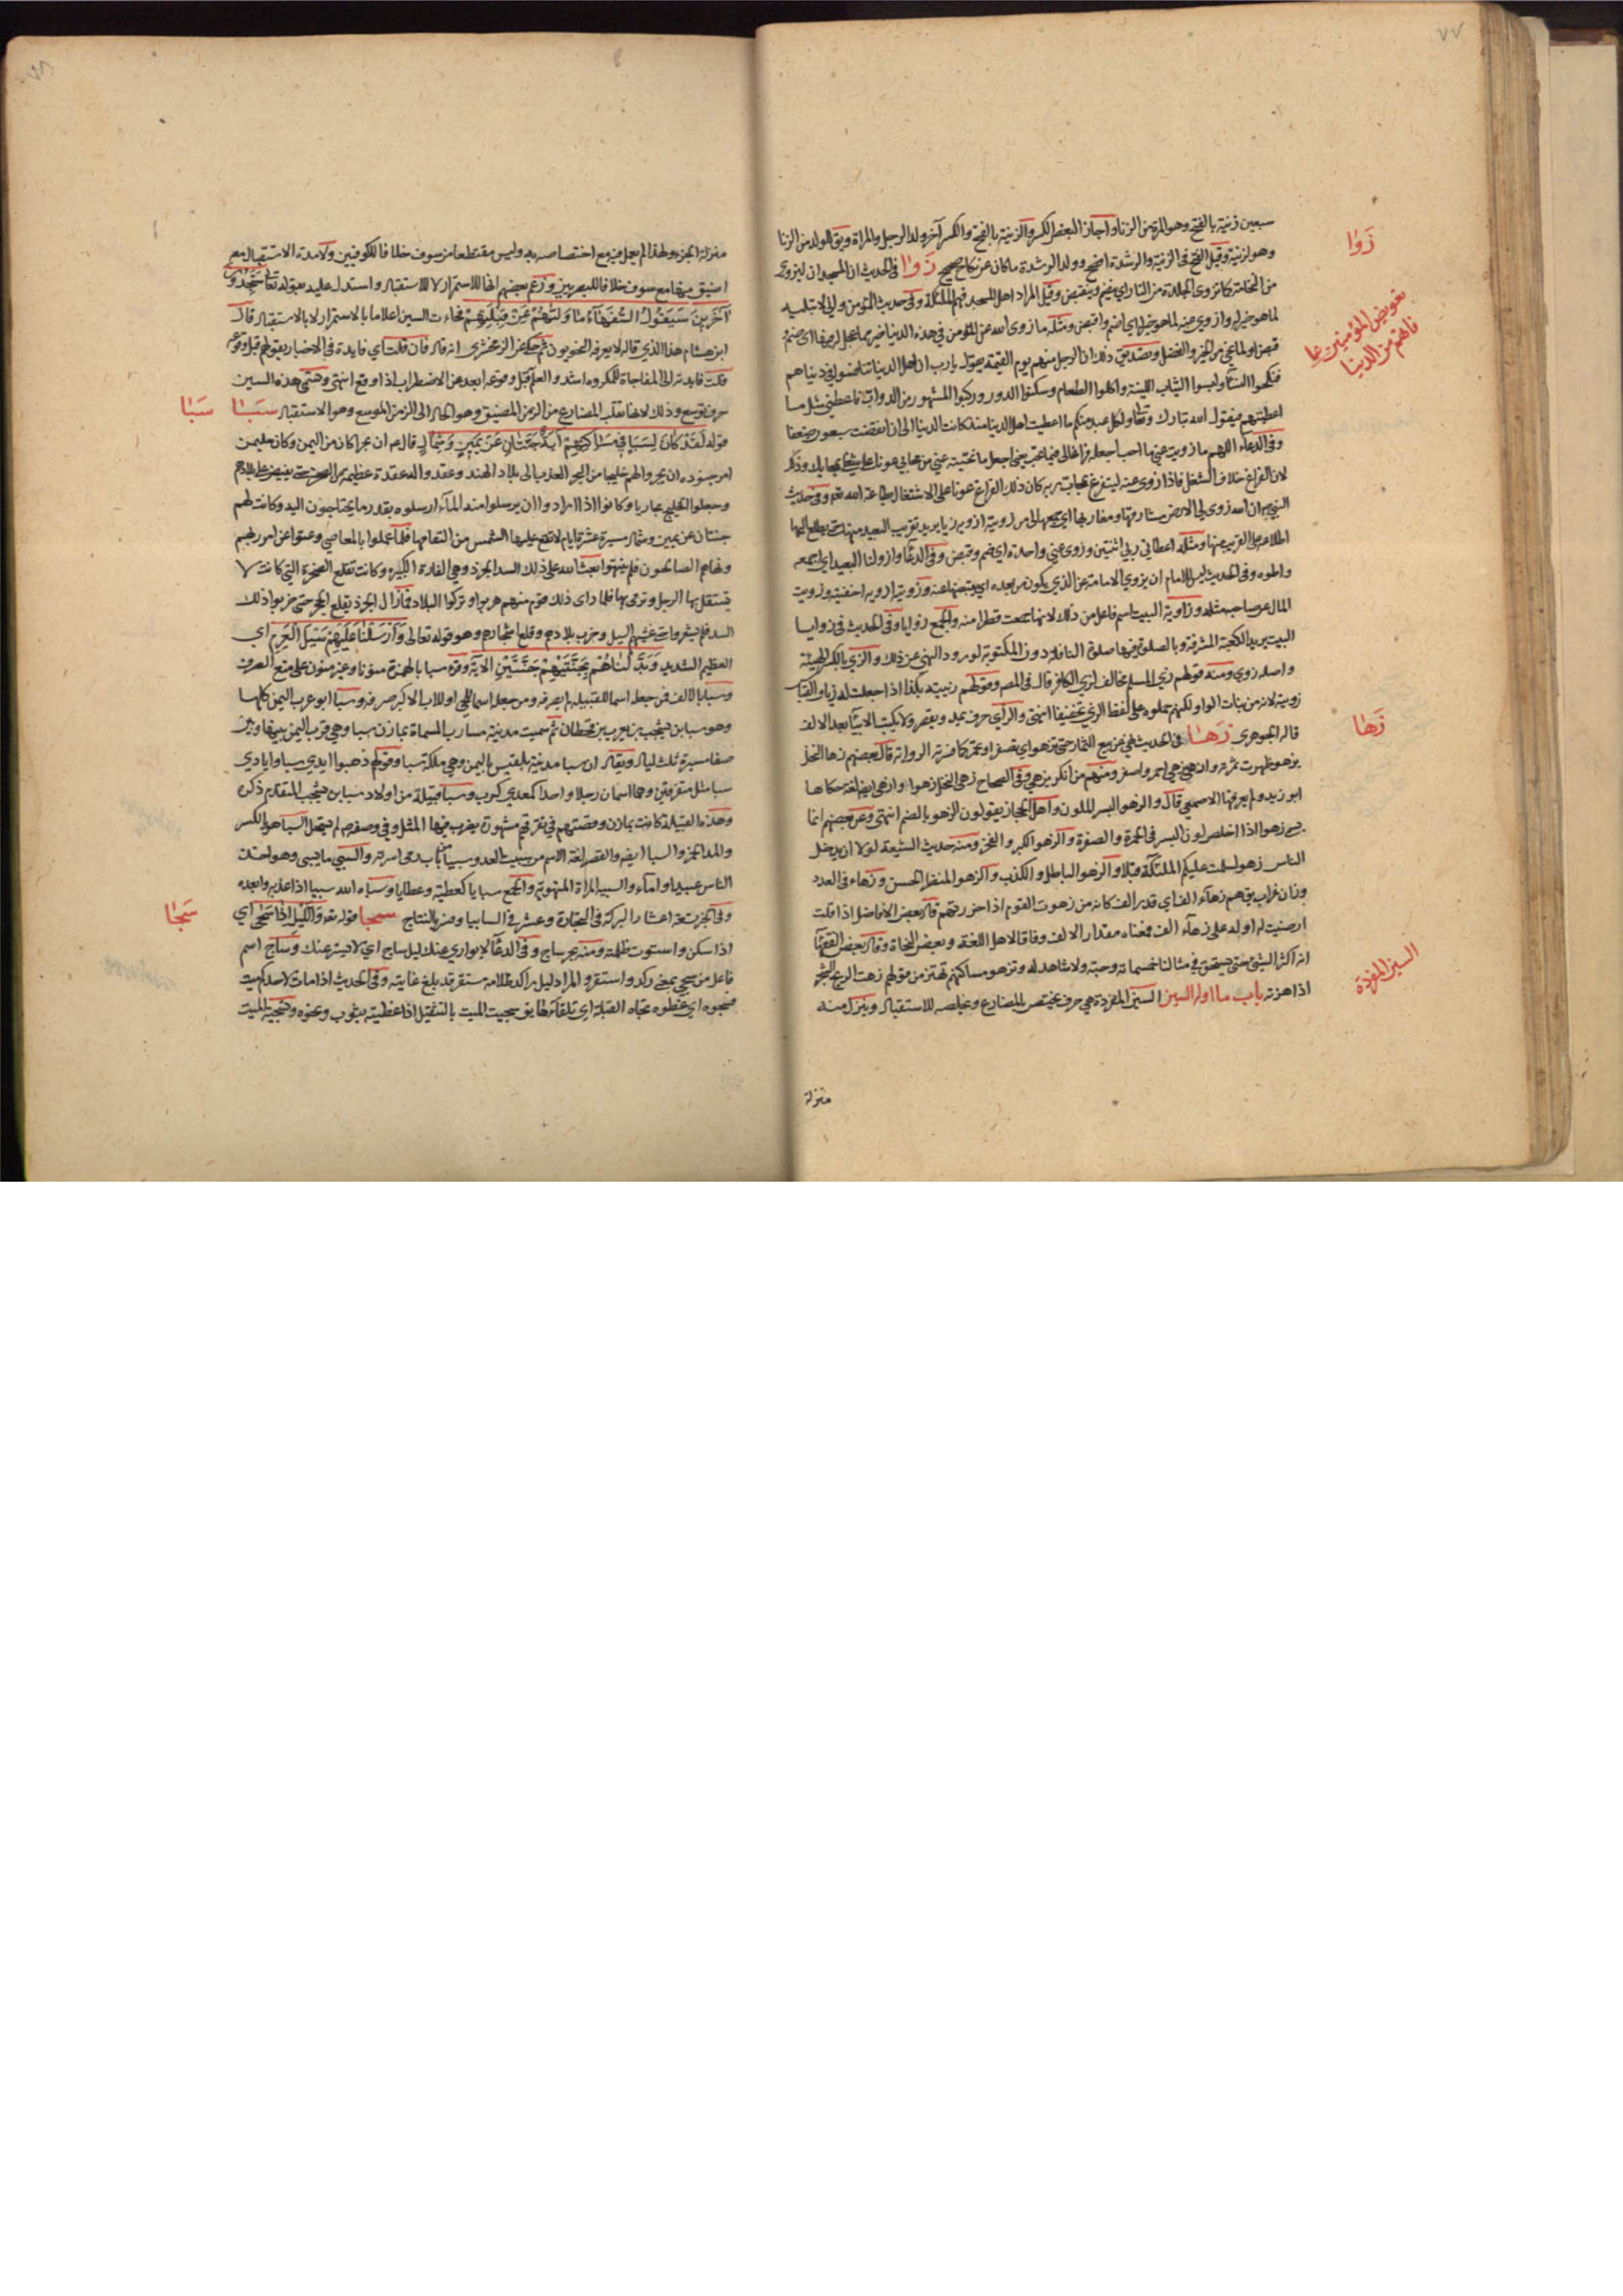 ٧٧
سبعين زنية بالفتح وهو المرة من الزنا واجاز البعض الكسر والزنية بالفتح والكسر آخر ولد الرجل والمراة ويق للولد من الزنا
وهو لزنية وقيل الفتح فى الزنية والرشدة افصح وولد الرشدة ما كان عن نكاح صحيح زوا فى الحديث ان المسجد لينزوى
من النخامة كما تزوى الجلدة من النار اى ينضم وينقبض وقيل المراد اهل المسجد فهم الملئكة وفى حديث المؤمن
لما هو خير له وازوي عنه لما هو خير له اي اضم واقبض ومثله ما زوى الله عن المؤمن في هذه الدنيا خير مما عجل له فيها اى ضم و
قبض او لما نحى من الخير والفضل وتصديق ذلك ان الرجل منهم يوم القيمة يقول يا رب ان اهل الدنيا تنافسوا في دنياهم
فنكحوا النسآء ولبسوا الثياب اللينة واكلوا الطعام وسكنوا الدور وركبوا المشهور من الدواب فاعطنى مثل ما
اعطيتهم فيقول الله تبارك وتعا ولكل عبد منكم ما اعطيت اهل الدنيا منذ كانت الدنيا الى ان انقضت سبعون ضعفا
وفى الدعآء اللهم ما زويت عني ما احب اجعله فراغا لى فيما تحب يعني اجعل ما نحيته عني من محابي عونا على شغلى بمحابك وذلك
لان الفراغ خلاف الشغل فاذا زوى عنه ليتفرغ بمحاب ربه كان ذلك الفراغ عونا على الاشتغال بطاعة الله تعم وفى حديث
النبى ان الله زوى لي الارض مشارقها ومغاربها اي جمعها لى من زويته ازويه زيا يريد تقريب البعيد منها حتى يطلع عليها
اطلاعه على القريب منها ومثله اعطاني ربي اثنتين وزوى عني واحدة اي ضم وقبض وفى الدعآ وازو لنا البعيد اى اجمعه
واطوه وفى الحديث ليس للامام ان يزوي الامامة عن الذي يكون من بعده اي يقبضها عنه وزويته ازويه اخفيته وزويت
المال عن صاحبه مثله وزاوية البيت اسم فاعل من ذلك لانها جمعت قطرا منه والجمع زوايا وفى الحديث فى زوايا
البيت يريد الكعبة المشرفة وبالصلوة فيها صلوة النافلة دون المكتوبة لورود النهى عن ذلك والزي بالكسر الهيئة
واصله زوي ومنه قولهم زي المسلم مخالف لزي الكافر قال فى المص وقولهم زييته بكذا اذا جعلت له زيا والقياس
زويته لانه من بنات الواو لكنهم حملوه على لفظ الزي تخفيفا انتهى والزآي حرف يمد ويقصر ولا يكتب الا بيآء بعد الالف
قاله الجوهرى زها فى الحديث نهى عن بيع الثمار حتى تزهو اى تصفر او تحمر كما فسرته الرواية قال بعضهم زها النخل
يزهو ظهرت ثمرته وازهى يزهي احمر واصفر ومنهم من انكر يزهي وفى الصحاح زهى النخل زهوا وازهى ايضا لغة حكاها
ابو زيد ولم يعرفها الاصمعي قال والزهو البسر الملون واهل الحجاز يقولون الزهو بالضم انتهى وعن بعضهم انما
يسمى زهوا اذا خلص لون البسر فى الحمرة والصفرة والزهو الكبر والفخر ومنه حديث الشيعة لولا ان يدخل
الناس زهو لسلمت عليكم الملئكة قبلا والزهو الباطل والكذب والزهو المنظر الحسن وزهاء فى العدد
وزان غراب يق هم زهآء الف اي قدر الف كانه من زهوت القوم اذا حزرتهم قال بعض الافاضل اذا قلت
ارضيت له اوله على زهآء الف فمعناه مقدار الالف وفاقا لاهل اللغة وبعض النحاة وقال بعض الفقهآء
انه اكثر الشيئ حتى يستحق في مثالنا خمسماة وحبة ولا شاهد له وتزهو مساكنهم تهتز من قولهم زهت الريح الشجر
اذا هزته باب ما اوله السين السين المفردة هي حرف يختص بالمضارع ويخلصه للاستقبال وينزل منه
منزلة
زوا
تعويض المؤمنين عما
فاتهم من الدنيا
زها
السين المفردة
٧٨
منزلة الجزء ولهذا لم يعمل فيه مع اختصاصه به وليس مقتطعا من سوف خلافا للكوفيين ولا مدة الاستقبال معه
اضيق منها مع سوف خلافا للبصريين وزعم بعضهم انها للاستمرار لا للاستقبال واستدل عليه بقوله تعا ستجدون
آخرين سيقول السفهآء ما وليهم عن قبلتهم فجاءت السين اعلاما بالاستمرار لا بالاستقبال قال
ابن هشام هذا الذي قاله لا يعرفه النحويون ثم حكى عن الزمخشرى انه قال فان قلت اي فايدة فى الاخبار بقولهم قبل وقوعه
قلت فايدته ان المفاجاة للمكروه اشد والعلم قبل وقوعه ابعد عن الاضطراب اذا وقع انتهى وهتى هذه السين
حرف توسع وذلك لانها تقلب المضارع من الزمن المضيق وهو الحال الى الزمن الموسع وهو الاستقبال سبا
قوله لقد كان لسبا في مساكنهم آية جنتان عن يمين وشمال قال هم ان بحرا كان من اليمن وكان سليمن
امر جنوده ان يجروا لهم خليجا من البحر العذب الى بلاد الهند وعقد واله عقدة عظيمة من الصخر حتى يفيض على بلادهم
وجعلوا للخليج مجاريا وكانوا اذا ارادوا ان يرسلوا منه المآء ارسلوه بقدر ما يحتاجون اليه وكانت لهم
جنتان عن يمين وشمال مسيرة عشرة ايام لا تقع عليها الشمس من التفافها فلما عملوا بالمعاصي وعتوا عن امر ربهم
ونهاهم الصالحون فلم ينتهوا بعث الله على ذلك السد الجرذ وهي الفارة الكبيرة وكانت تقلع الصخرة التي كانت لا
يستقل بها الرجل وترمى بها فلما راى ذلك قوم منهم هربوا وتركوا البلاد فما زال الجرذ يقلع الحجر حتى خربوا ذلك
السد فلم يشعروا حتى غشيهم السيل وخرب بلادهم وقلع اشجارهم وهو قوله تعالى وارسلنا عليهم سيل العرم اي
العظيم الشديد وبدلناهم بجنتيهم جنتين الاية وقرء سبا بالهمزة منونا وغير منون على منع الصرف
وسبا بالالف فمن جعله اسما للقبيلة لم يصرفه ومن جعله اسما للحي او للاب الاكبر صرفه وسبا ابو عرب اليمن كلها
وهو سبا بن يشجب بن يعرب بن قحطان ثم سميت مدينة مارب المسماة بمازن سبا وهي قرب اليمن بينها وبين
صنعا مسيرة ثلث ليال ويقال ان سبا مدينة بلقيس باليمن وهي ملكة سبا وقولهم ذهبوا ايدي سبا وايادي
سبا مثل متفرقين وهما اسمان جعلا واحدا كمعدي كرب وسبا قبيلة من اولاد سبا بن يشجب المتقدم ذكره
وهذه القبيلة كانت بمازن وقصتهم في تفرقهم مشهورة يضرب فيها المثل وفي وصفهم لم يستحل السبا هو بالكسر
والمد الهمزة والسبا ايضه والقصر لغة الاسم من سبيت العدو سبيا من باب رمى اسرته والسبي ما يسبى وهو اخذ
الناس عبيدا وامآء والسبية المراة المنهوبة والجمع سبايا كعطية وعطايا وسباه الله سبيا اذا غربه وابعده
وفى الخبر تسعة اعشار البركة فى التجارة وعشر في السابيا وفسر بالنتاج سجا قوله تع والليل اذا سجى اي
اذا سكن واستوت ظلمته ومنه بحر ساج وفى الدعآ لا يواري عنك ليل ساج اي لا يستر عنك وساج اسم
فاعل من سجي بمعنى ركد واستقر والمراد ليل راكد ظلامه مستقر قد بلغ غايته وفى الحديث اذا مات لاحدكم ميت
فسجوه اي غطوه تجاه القبلة اي تلقآءها يق سجيت الميت بالتثقيل اذا غطيته بثوب ونحوه وتسجية الميت
سبا
سجا